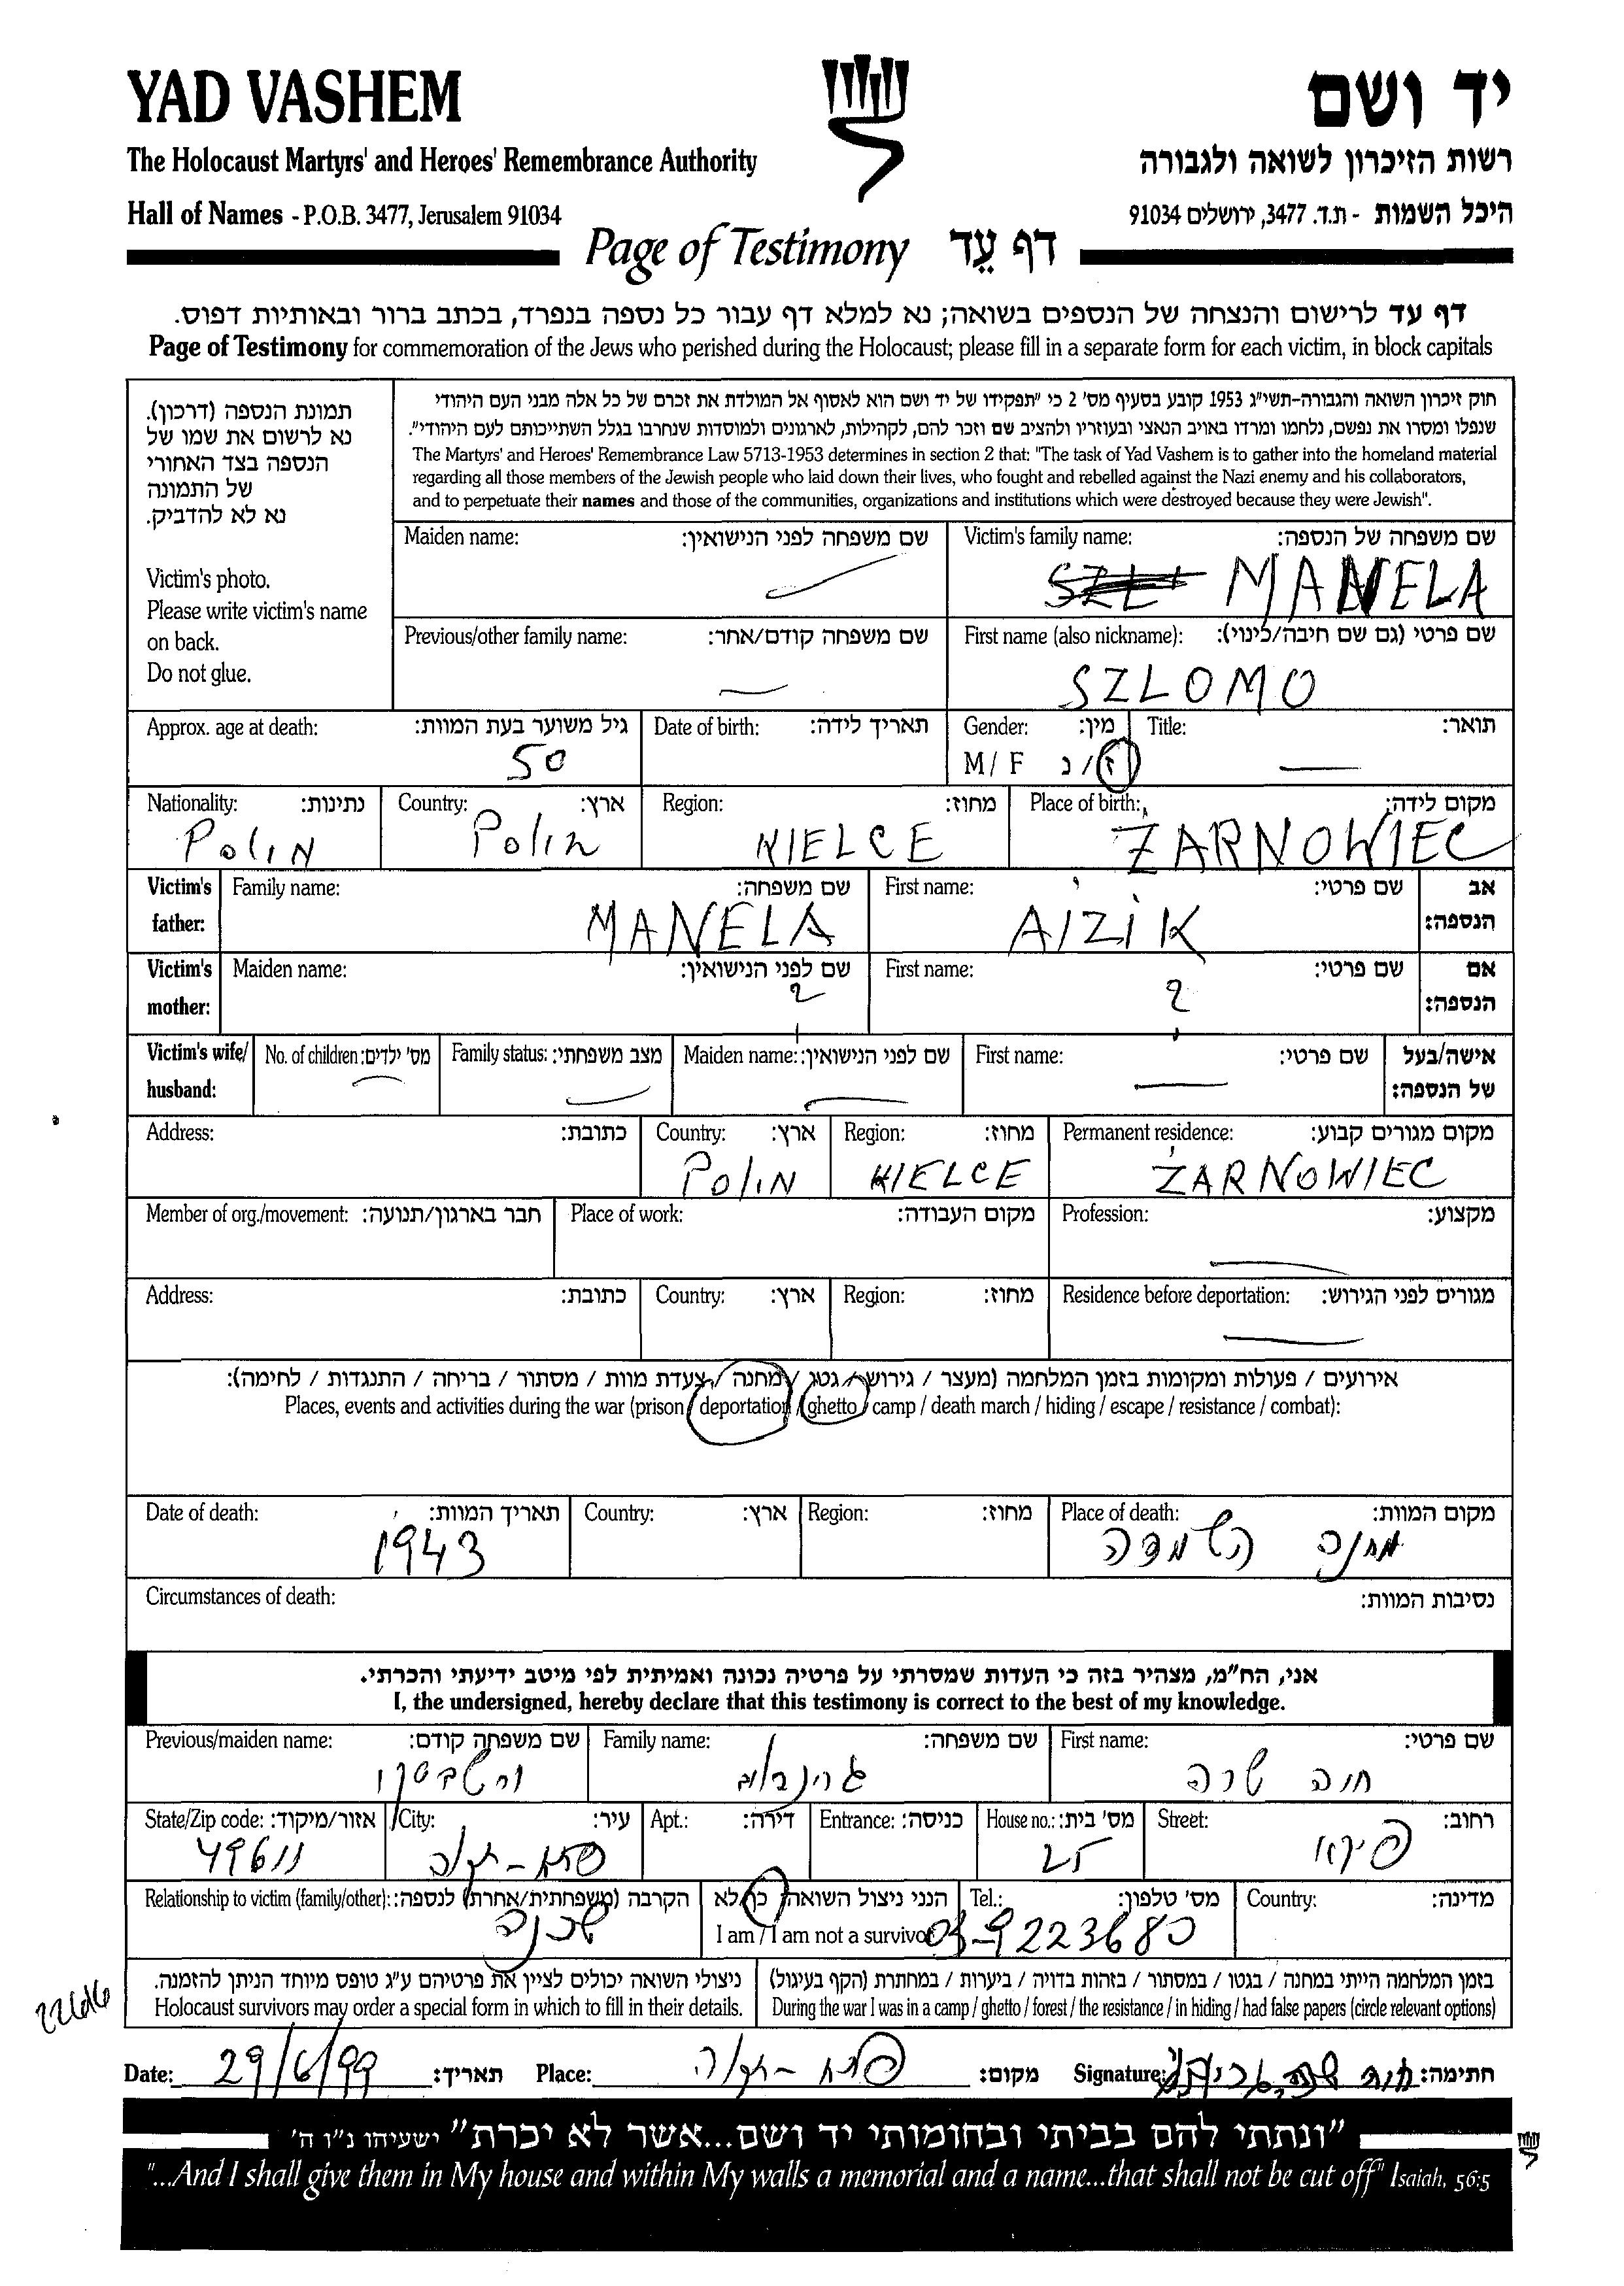 YAD VASHEM
יד ושם
The Holocaust Martyrs' and Heroes' Remembrance Authority
רשות הזיכרון לשואה ולגבורה
Hall of Names - P.O.B. 3477, Jerusalem 91034
היכל השמות - ת.ד. 3477, ירושלים 91034
Page of Testimony דף עֵד
דף עד לרישום והנצחה של הנספים בשואה; נא למלא דף עבור כל נספה בנפרד, בכתב ברור ובאותיות דפוס.
Page of Testimony for commemoration of the Jews who perished during the Holocaust; please fill in a separate form for each victim, in block capitals
תמונת הנספה (דרכון).
נא לרשום את שמו של
הנספה בצד האחורי
של התמונה
נא לא להדביק.
Victim's photo.
Please write victim's name
on back.
Do not glue.
חוק זיכרון השואה והגבורה-תשי"ג 1953 קובע בסעיף מס' 2 כי "תפקידו של יד ושם הוא לאסוף אל המולדת את זכרם של כל אלה מבני העם היהודי
שנפלו ומסרו את נפשם, נלחמו ומרדו באויב הנאצי ובעוזריו ולהציב שם וזכר להם, לקהילות, לארגונים ולמוסדות שנחרבו בגלל השתייכותם לעם היהודי".
The Martyrs' and Heroes' Remembrance Law 5713-1953 determines in section 2 that: "The task of Yad Vashem is to gather into the homeland material
regarding all those members of the Jewish people who laid down their lives, who fought and rebelled against the Nazi enemy and his collaborators,
and to perpetuate their names and those of the communities, organizations and institutions which were destroyed because they were Jewish".
Maiden name: שם משפחה לפני הנישואין: Victim's family name: שם משפחה של הנספה:
MANELA
Previous/other family name: שם משפחה קודם/אחר: First name (also nickname): שם פרטי (גם שם חיבה/כינוי):
SZLOMO
Approx. age at death: גיל משוער בעת המוות: Date of birth: תאריך לידה: Gender: מין: Title: תואר:
50 M / F ז / נ
Nationality: נתינות: Country: ארץ: Region: מחוז: Place of birth: מקום לידה:
Polin Polin KIELCE ŻARNOWIEC
Victim's father: Family name: שם משפחה: First name: שם פרטי: אב הנספה:
MANELA AIZIK
Victim's mother: Maiden name: שם לפני הנישואין: First name: שם פרטי: אם הנספה:
? ?
Victim's wife/ husband: No. of children: מס' ילדים: Family status: מצב משפחתי: Maiden name: שם לפני הנישואין: First name: שם פרטי: אישה/בעל של הנספה:
Address: כתובת: Country: ארץ: Region: מחוז: Permanent residence: מקום מגורים קבוע:
Polin KIELCE ŻARNOWIEC
Member of org./movement: חבר בארגון/תנועה: Place of work: מקום העבודה: Profession: מקצוע:
Address: כתובת: Country: ארץ: Region: מחוז: Residence before deportation: מגורים לפני הגירוש:
אירועים / פעולות ומקומות בזמן המלחמה (מעצר / גירוש / גטו / מחנה / צעדת מוות / מסתור / בריחה / התנגדות / לחימה):
Places, events and activities during the war (prison / deportation / ghetto / camp / death march / hiding / escape / resistance / combat):
Date of death: תאריך המוות: Country: ארץ: Region: מחוז: Place of death: מקום המוות:
1943 מחנה השמדה
Circumstances of death: נסיבות המוות:
אני, הח"מ, מצהיר בזה כי העדות שמסרתי על פרטיה נכונה ואמיתית לפי מיטב ידיעתי והכרתי.
I, the undersigned, hereby declare that this testimony is correct to the best of my knowledge.
Previous/maiden name: שם משפחה קודם: Family name: שם משפחה: First name: שם פרטי:
חוה שרה
State/Zip code: אזור/מיקוד: City: עיר: Apt.: דירה: Entrance: כניסה: House no.: מס' בית: Street: רחוב:
49611 פתח-תקוה 25
Relationship to victim (family/other): הקרבה (משפחתית/אחרת) לנספה: הנני ניצול השואה כן/לא Tel.: מס' טלפון: Country: מדינה:
שכנה I am / I am not a survivor 03-9223680
ניצולי השואה יכולים לציין את פרטיהם ע"ג טופס מיוחד הניתן להזמנה. בזמן המלחמה הייתי במחנה / בגטו / במסתור / בזהות בדויה / ביערות / במחתרת (הקף בעיגול)
Holocaust survivors may order a special form in which to fill in their details. During the war I was in a camp / ghetto / forest / the resistance / in hiding / had false papers (circle relevant options)
Date: 29/6/99 תאריך: Place: פתח-תקוה מקום: Signature: חוה שרה חתימה:
"ונתתי להם בביתי ובחומותי יד ושם...אשר לא יכרת" ישעיהו נ"ו ה'
"...And I shall give them in My house and within My walls a memorial and a name...that shall not be cut off" Isaiah, 56:5